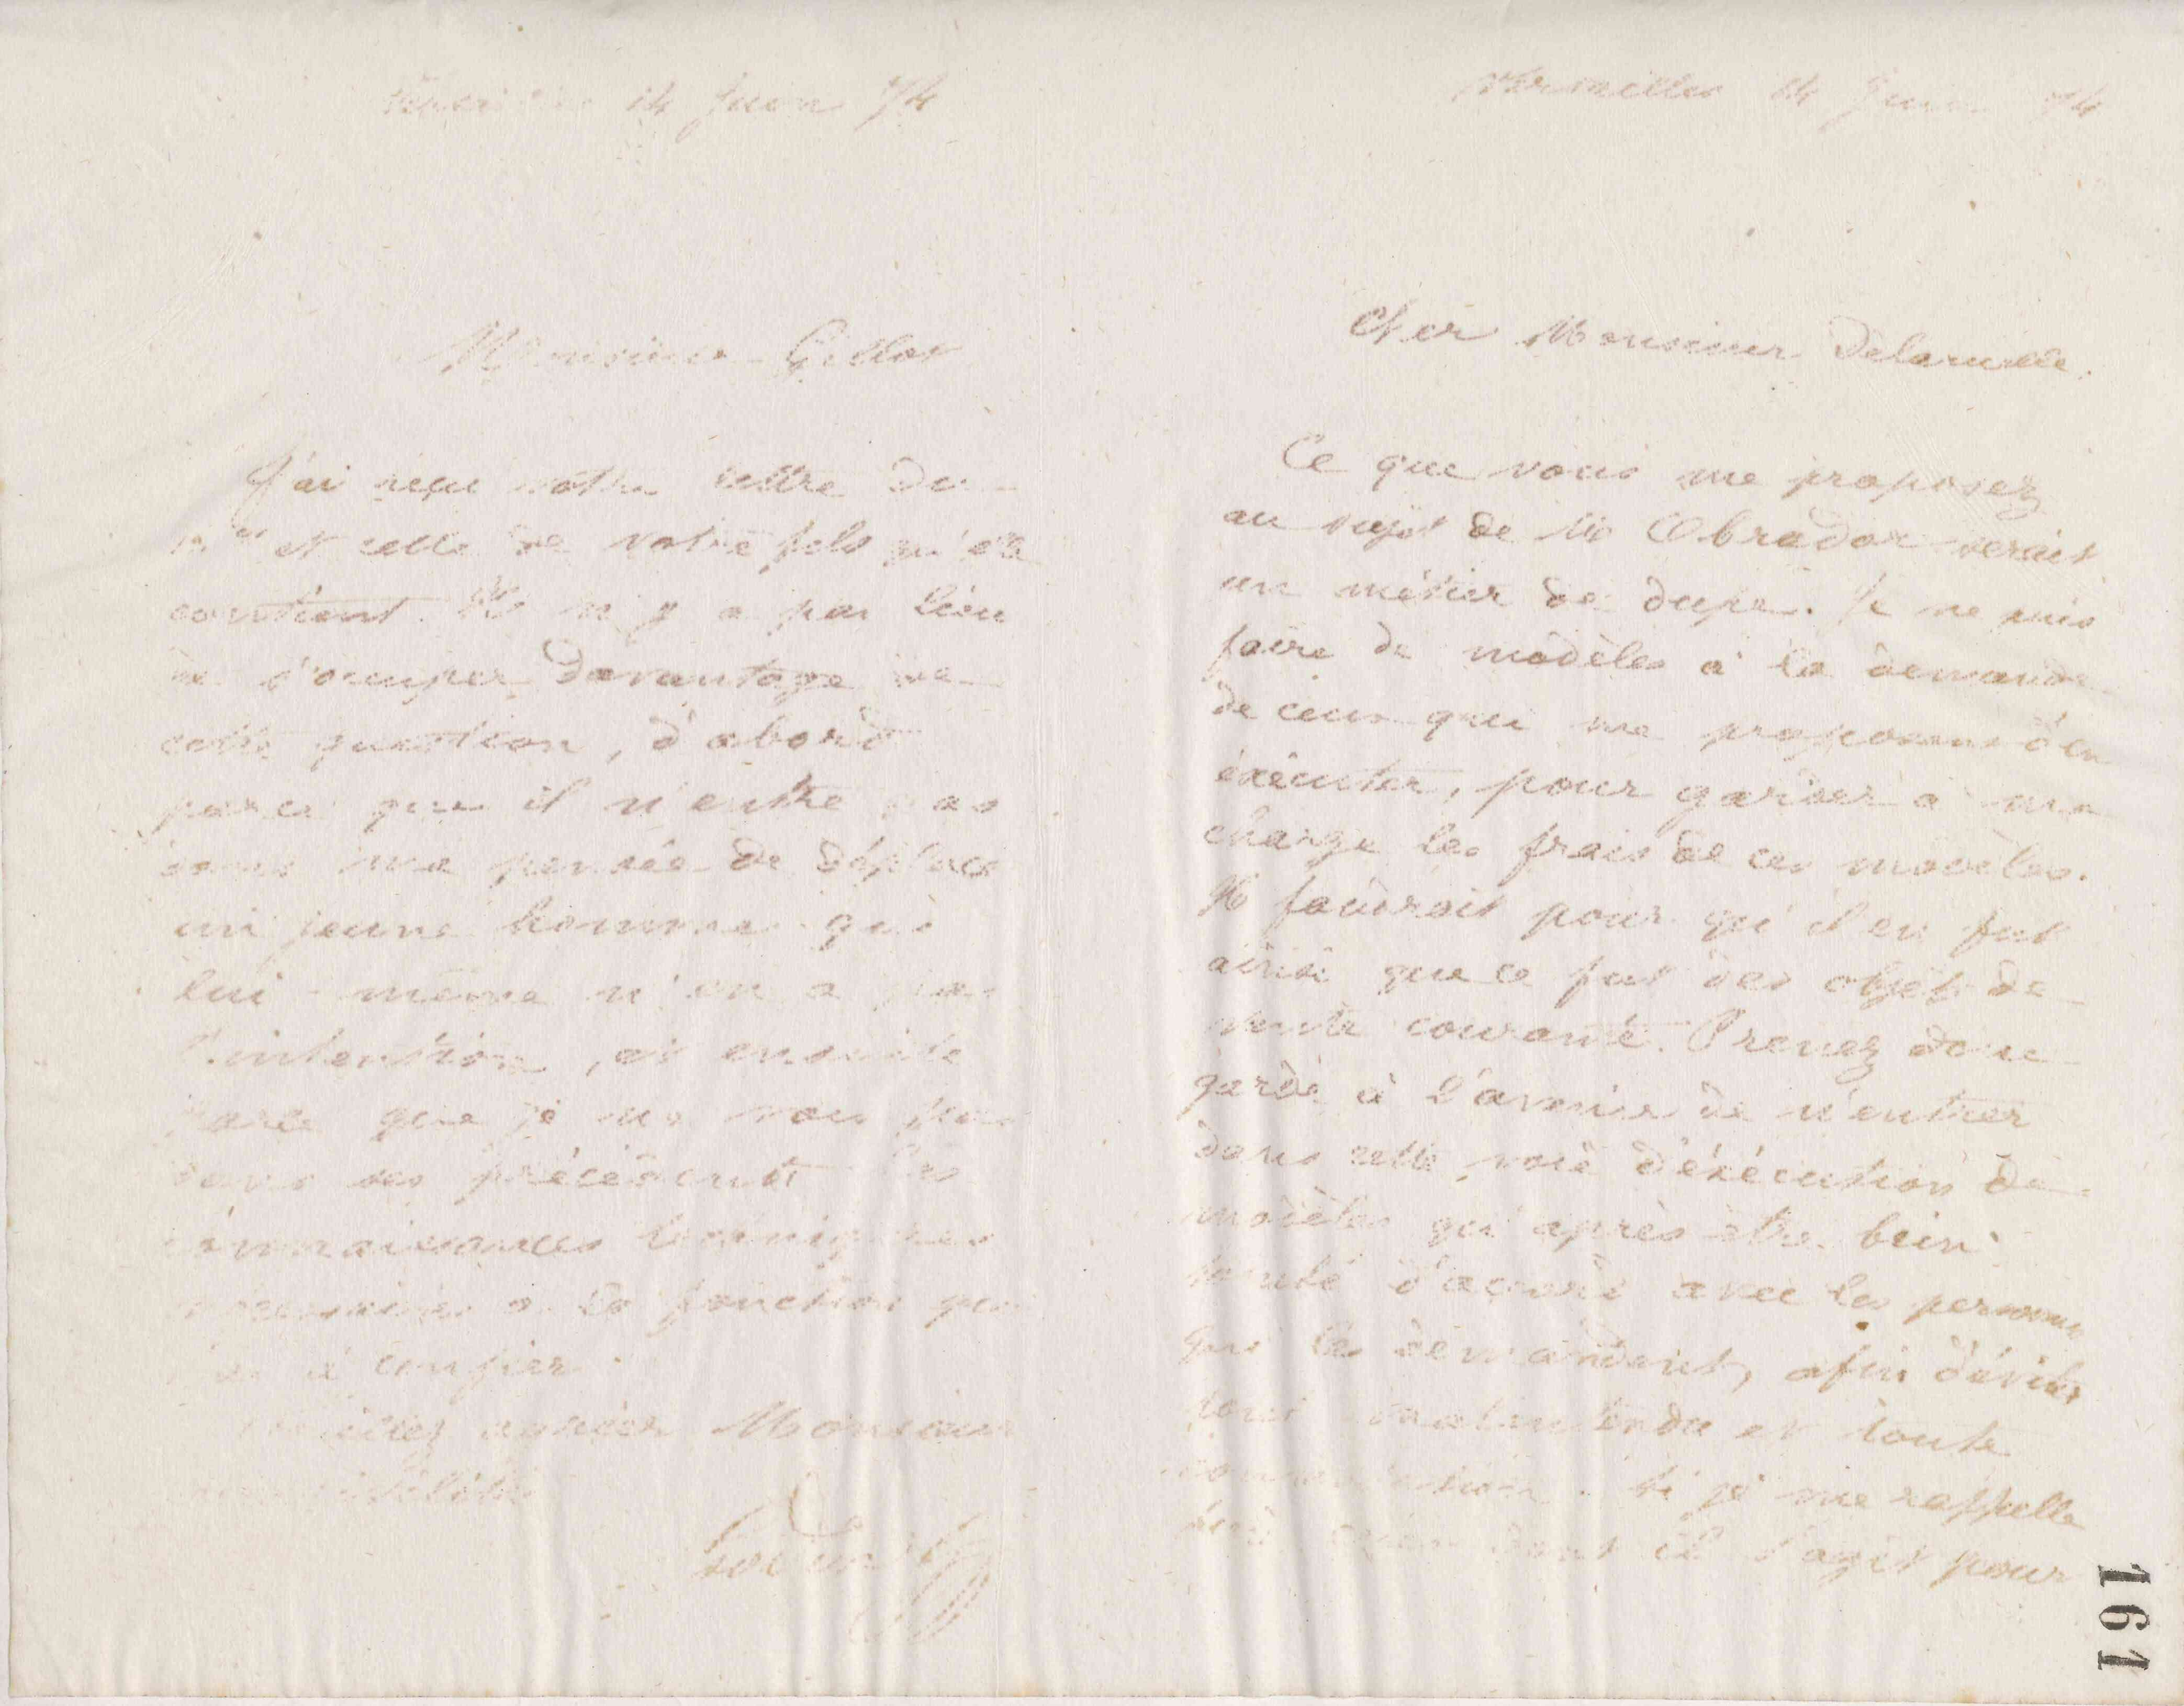 Versailles 14 Juin 74
Monsieur Gillot
J'ai reçu votre lettre du
et celle de votre fils qu'elle
contient. Il n'y a pas lieu
de s'occuper davantage de
cette question, d'abord
parce que il n'entre pas
dans ma pensée de déplacer
un jeune homme qui
lui-même n'en a pas
l'intention, et ensuite
parce que je ne vois pas
dans ses précédents les
connaissances techniques
nécessaires à la fonction que
à confier.
Veuillez agréer Monsieur
Godin
Versailles 14 Juin 74
Cher Monsieur Delaruelle.
Ce que vous me proposez
au sujet de Mr Obrador serait
un métier de dupe. Je ne puis
faire de modèles à la demande
de ceux qui me proposent d'en
éxécuter, pour garder à ma
charge les frais de ces modèles.
Il faudrait pour qu'il en fut
ainsi que ce fut des objets de
vente courante. Prenez donc
garde à l'avenir de n'entrer
dans cette voie d'éxécution de
modèles qu'après être bien
tombé d'accord avec les personnes
qui les demandent, afin d'éviter
tout malentendu et toute
si je me rappelle
dont il s'agit pour
161